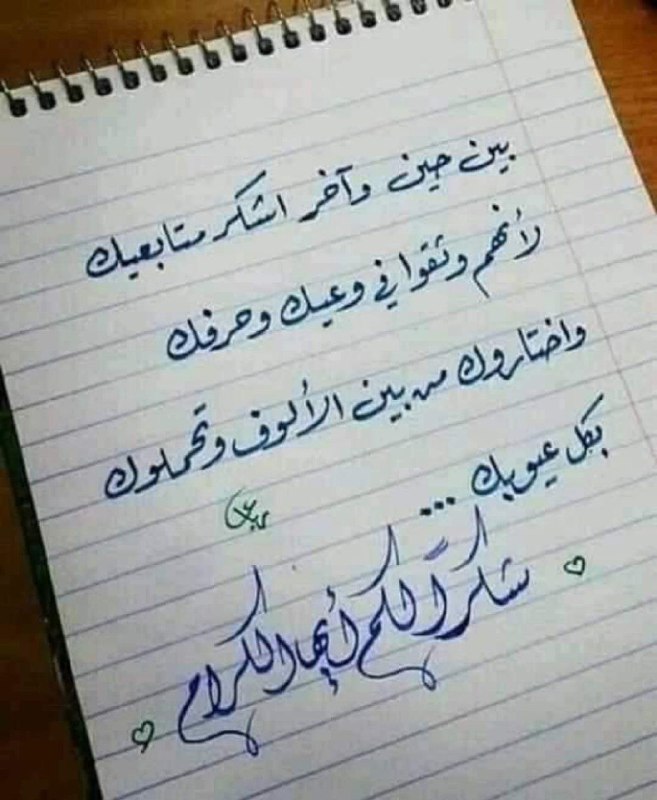 بين حين وآخر اشكر متابعيك
لأنهم وثقوا في وعيك وحرفك
واختاروك من بين الألوف وتحملوك
بكل عيوبك ...
شكراً لكم أيها الكرام